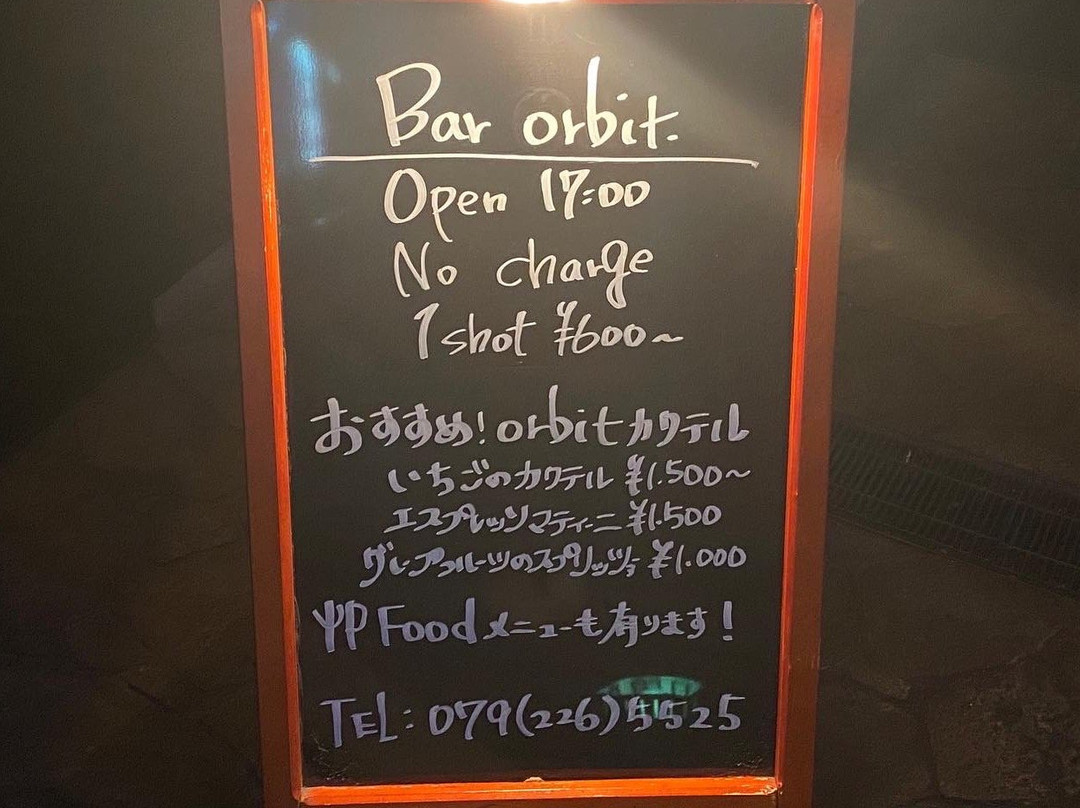 Bar orbit.
Open 17:00
No charge
1 shot ¥600~
おすすめ!orbitカクテル
いちごのカクテル ¥1.500~
エスプレッソマティーニ ¥1.500
グレープフルーツのスプリッツァ ¥1.000
Foodメニューも有ります!
TEL:079(226)5525